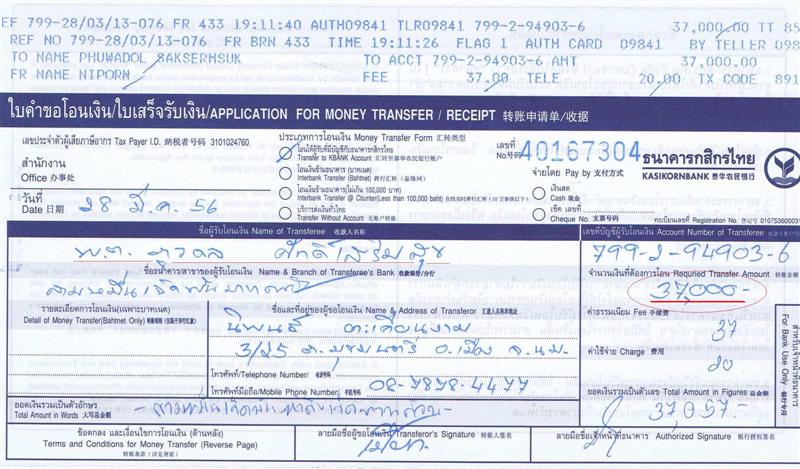 EF 799-28/03/13-076 FR 433 19:11:40 AUTH09841 TLR09841 799-2-94903-6 37,000.00 TT 85
REF NO 799-28/03/13-076 FR BRN 433 TIME 19:11:26 FLAG 1 AUTH CARD 09841 BY TELLER 098
TO NAME PHUWADOL SAKSERMSUK TO ACCT 799-2-94903-6 AMT 37,000.00
FR NAME NIPORN FEE 37.00 TELE 20.00 TX CODE 891
ใบคำขอโอนเงิน/ใบเสร็จรับเงิน/APPLICATION FOR MONEY TRANSFER / RECEIPT 转账申请单/收据
เลขประจำตัวผู้เสียภาษีอากร Tax Payer I.D. 纳税者号码 3101024760
ประเภทการโอนเงิน Money Transfer Form 汇转类型
โอนให้ผู้รับที่มีบัญชีกับธนาคารกสิกรไทย
Transfer to KBANK Account 汇转至泰华农民银行账户
โอนเงินข้ามธนาคาร (บาทเนต)
Interbank Transfer (Bahtnet) 跨行汇转 (泰铢网)
โอนเงินข้ามธนาคาร(ไม่เกิน 100,000 บาท)
Interbank Transfer @ Counter(Less than 100,000 baht)
บริการส่งเงินทั่วไทย
Transfer Without Account 无账户转账
เลขที่
No号码 40167304
ธนาคารกสิกรไทย
KASIKORNBANK 泰华农民银行
สำนักงาน
Office 办事处
จ่ายโดย Pay by 支付方式
เงินสด
Cash 现金
เช็ค เลขที่
Cheque No. 支票号码
ทะเบียนเลขที่ Registration No. 登记号 010753600031
วันที่
Date 日期 28 มี.ค. 56
ชื่อผู้รับโอนเงิน Name of Transferee 收款人名称
เลขที่บัญชีผู้รับโอนเงิน Account Number of Transferee
พ.ต. ภูวดล ศักดิ์เสริมสุข
799-2-94903-6
ชื่อธนาคาร/สาขาของผู้รับโอนเงิน Name & Branch of Transferee's Bank 收款银行/分行
จำนวนเงินที่ต้องการโอน Required Transfer Amount 转账金额
สามหมื่นเจ็ดพันบาทถ้วน
37,000-
รายละเอียดการโอนเงิน(เฉพาะบาทเนต)
Detail of Money Transfer(Bahtnet Only)
ชื่อและที่อยู่ของผู้ขอโอนเงิน Name & Address of Transferor 汇款人名称和地址
ค่าธรรมเนียม Fee 手续费
37
3/25
ค่าใช้จ่าย Charge 费用
20
โทรศัพท์/Telephone Number/ 电话号码
โทรศัพท์มือถือ/Mobile Phone Number/ 手机号 08-7878-4477
ยอดเงินรวมเป็นตัวเลข Total Amount in Figures 总金额
37,057
สำหรับเจ้าหน้าที่ธนาคาร
For Bank Use Only
ยอดเงินรวมเป็นตัวอักษร
Total Amount in Words 大写总金额 -สามหมื่นเจ็ดพันห้าสิบเจ็ดบาทถ้วน-
ข้อตกลง และเงื่อนไขการโอนเงิน (ด้านหลัง)
Terms and Conditions for Money Transfer (Reverse Page)
转账条款 (详见背面)
ลายมือชื่อผู้ขอโอนเงิน Transferor's Signature 转账人签名
ลายมือชื่อเจ้าหน้าที่ธนาคาร Authorized Signature 银行授权签名